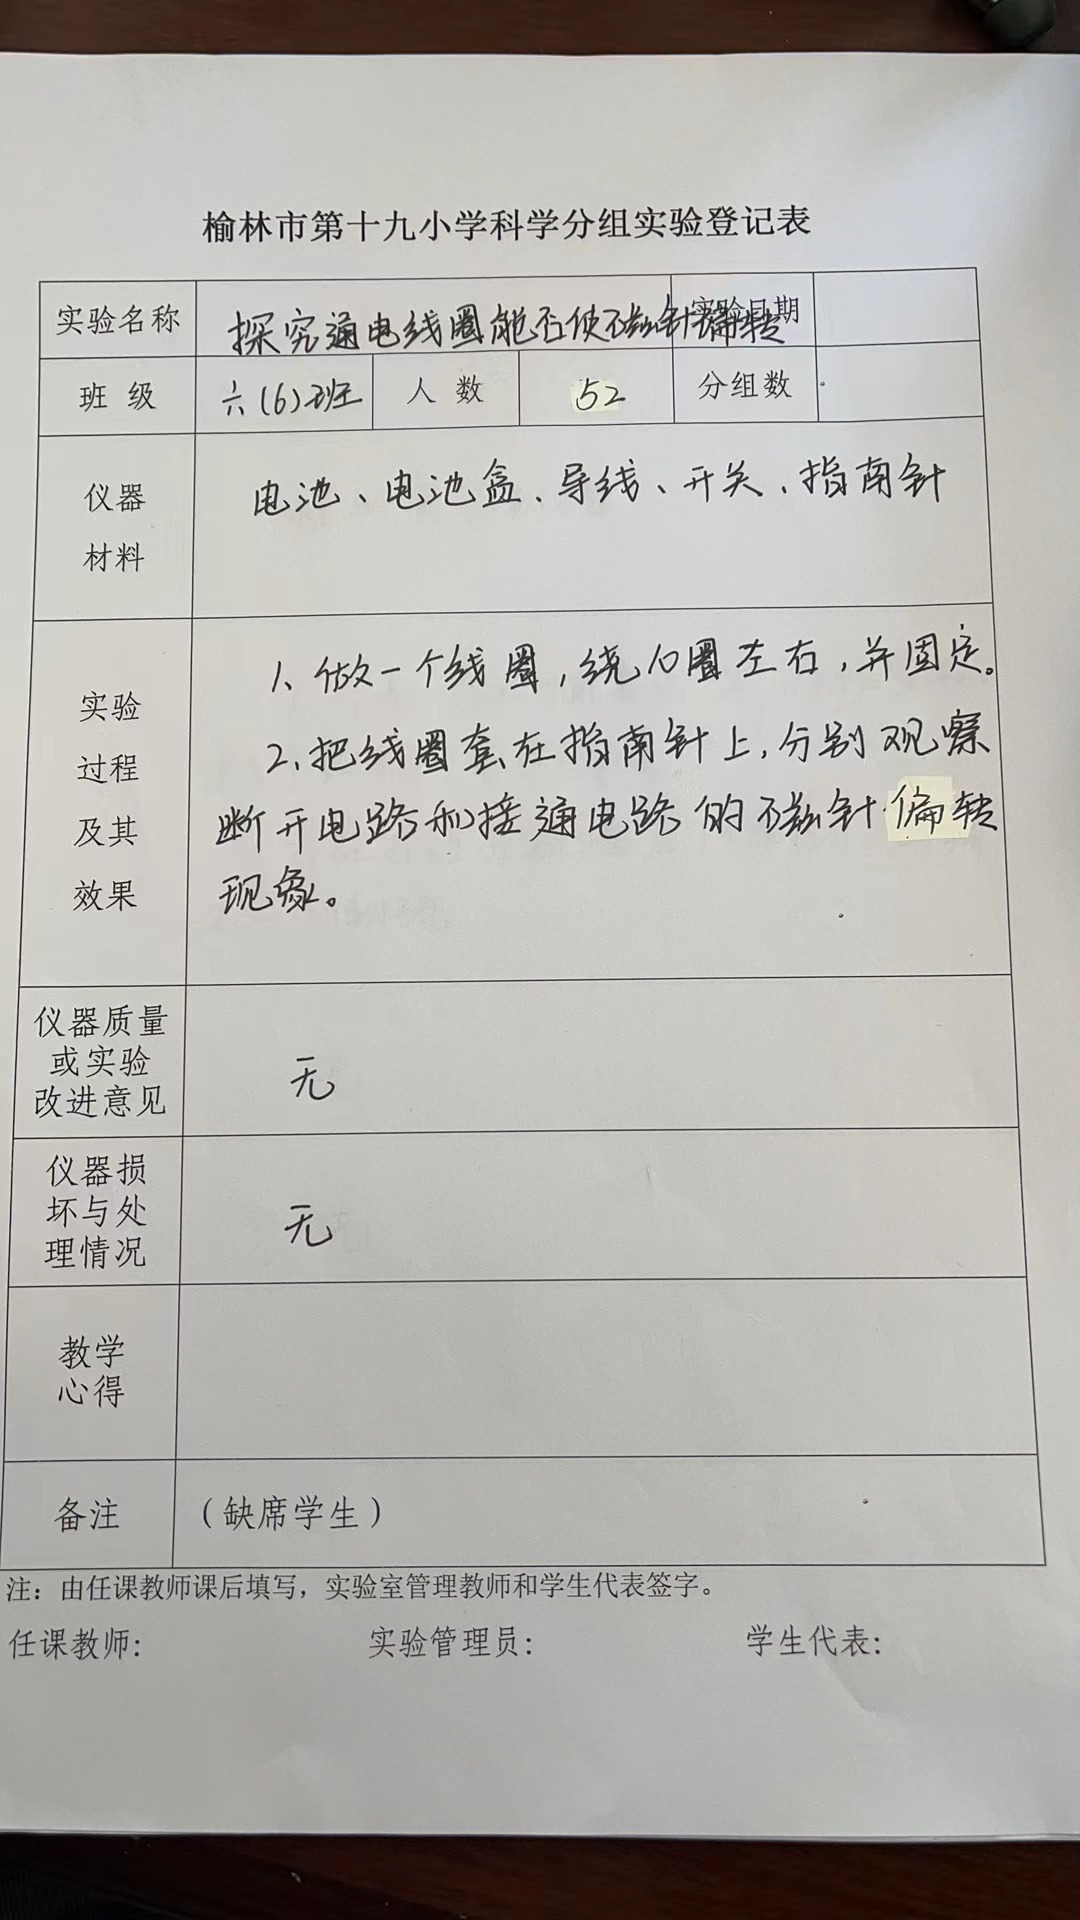 榆林市第十九小学科学分组实验登记表
实验名称 探究通电线圈能否使磁针偏转 实验日期
班 级 六(6)班 人 数 52 分组数
仪器
材料
电池、电池盒、导线、开关、指南针
实验
过程
及其
效果
1、做一个线圈,绕10圈左右,并固定。
2、把线圈套在指南针上,分别观察
断开电路和接通电路的磁针偏转
现象。
仪器质量
或实验
改进意见
无
仪器损
坏与处
理情况
无
教学
心得
备注 (缺席学生)
注:由任课教师课后填写,实验室管理教师和学生代表签字。
任课教师: 实验管理员: 学生代表: